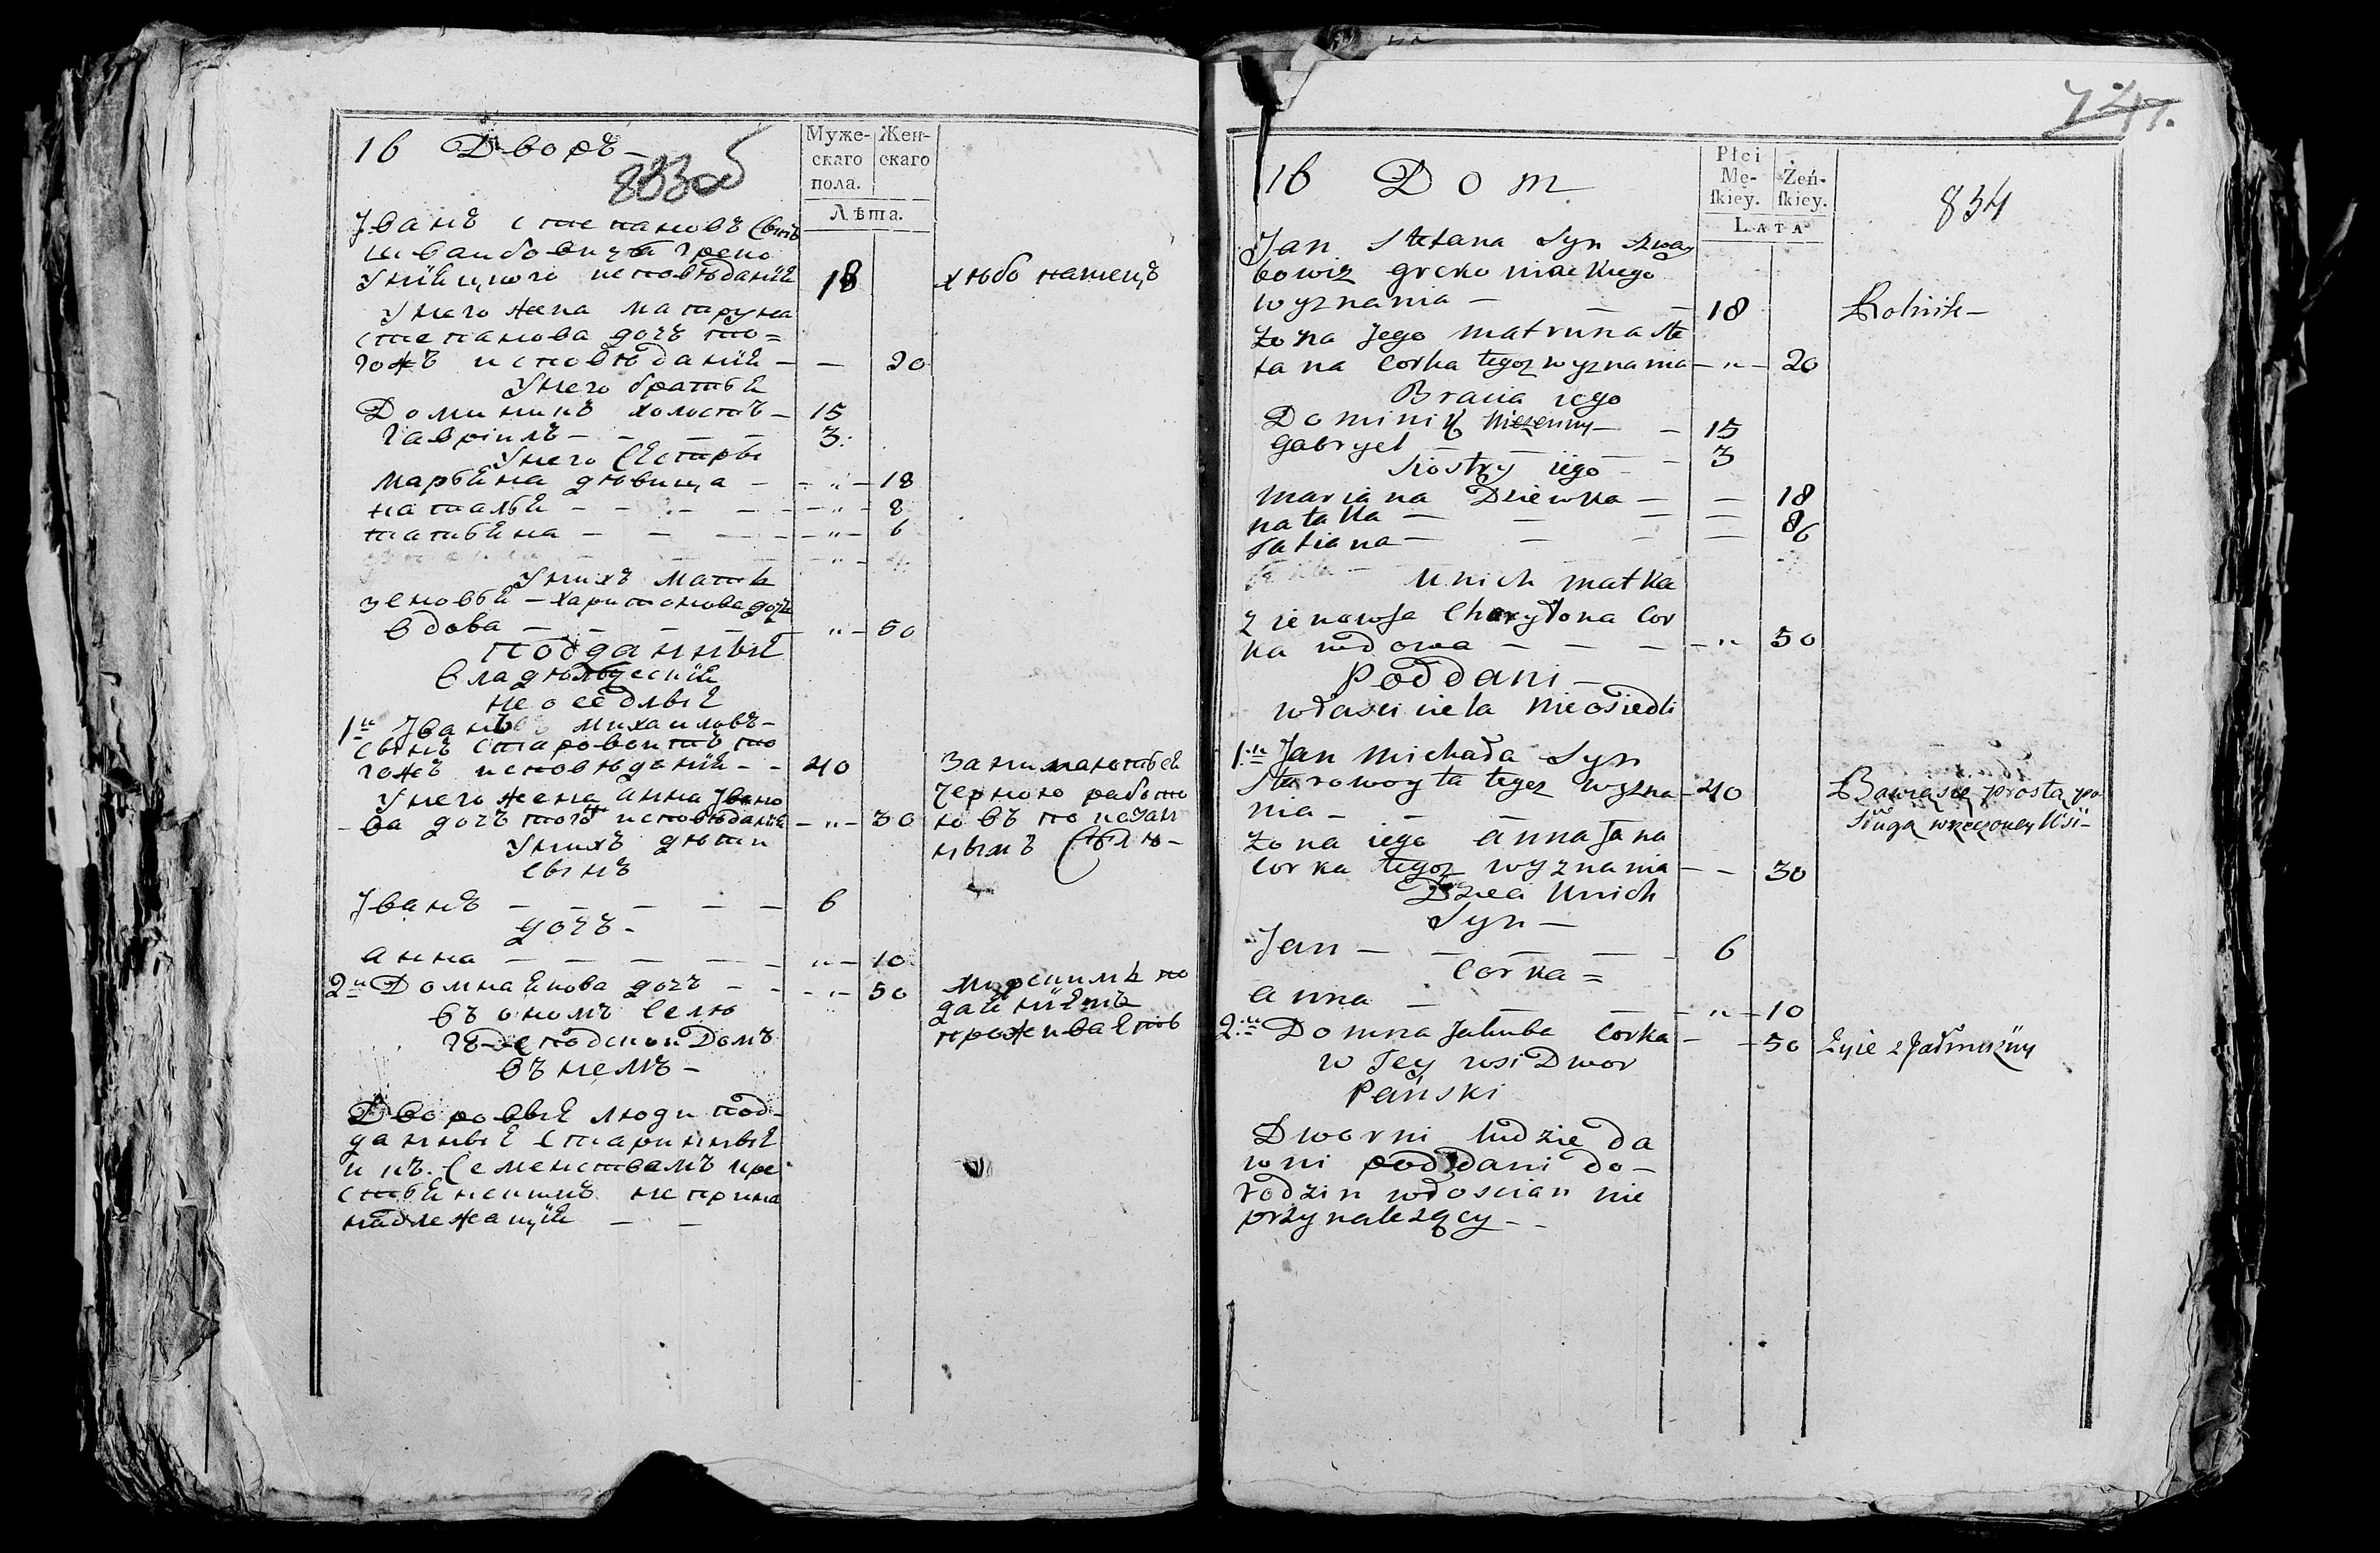 16 Дворъ
833 об
Муже-
скаго
пола.
Жен-
скаго
Лѣта.
Иванъ Степановъ сынъ
Швайбовичъ Греко
Унїяцкого исповѣданїя 18 хлѣбопашецъ
У него жена Матруна
Степанова дочь то=
гожъ исповѣданїя — — 20
У него братья
Доминикъ холостъ — 15
Гаврїилъ — — — 3
У него сестры
Марьяна дѣвица — „ — 18
Наталья — — — — „ — 8
Татьяна — — — — „ — 6
У нихъ мать
Зеновья — Харитонова дочь
вдова — — — — „ — 50
Подданныя
владѣльческїя
неоседлыя
1й Иванъ Михаиловъ —
сынъ Старовойтъ то
гожъ исповѣданїя — — 40 Занимаются
У него жена Анна Ивано
черною работо
— ва дочь того исповѣданїя — „ — 30 ю въ показан
У нихъ дѣти
нымъ Селѣ —
сынъ
Иванъ — — — — — 6
дочь —
Анна — — — — — „ — 10
2я Домна Якова дочь — — „ — 50 мирскимъ по
въ ономъ селѣ
даянїемъ
Господской Домъ
проживаетъ
въ немъ —
Дворовыя люди под
данныя старинныя
и къ семействамъ кре
стьянскимъ не прина
длежащїя — —
747.
16 Dom
Płci
Mę-
skiey.
Żeń-
skiey.
LATA
834
Jan Stefana Syn Szway
bowiz greko uniackiego
wyznania — — — 18 Rolnik —
żona Jego Matruna Ste
fana Corka tegoz wyznania — „ — 20
Bracia iego
Dominik — — 15
Gabryel — — — 3
Siostry iego —
Mariana Dziewka — — 18
Natalia — — — — 8
Tatiana — — — — 6
U nich matka
Zienowia Charytona Cor
ka wdowa — — — — „ 50
Poddani —
właściciela nieosiedli
1:n Jan Michała Syn
Starowoyta tegoz wyzna — 40 Bawi się prostą po
nia — — —
sługą wrzeczoney Wsi —
żona iego Anna Jana
Corka tegoz wyznania — — 30
Dzieci Unich
Syn —
Jan — — — — — 6
Corka =
Anna — — — — „ — 10
2:a Domna Jakuba Corka — — 50 Żyie z Jałmużny
w Tey wsi Dwor
Pański
Dworni ludzie da
wni poddani do —
rodzin włoscian nie
przynalezący — —